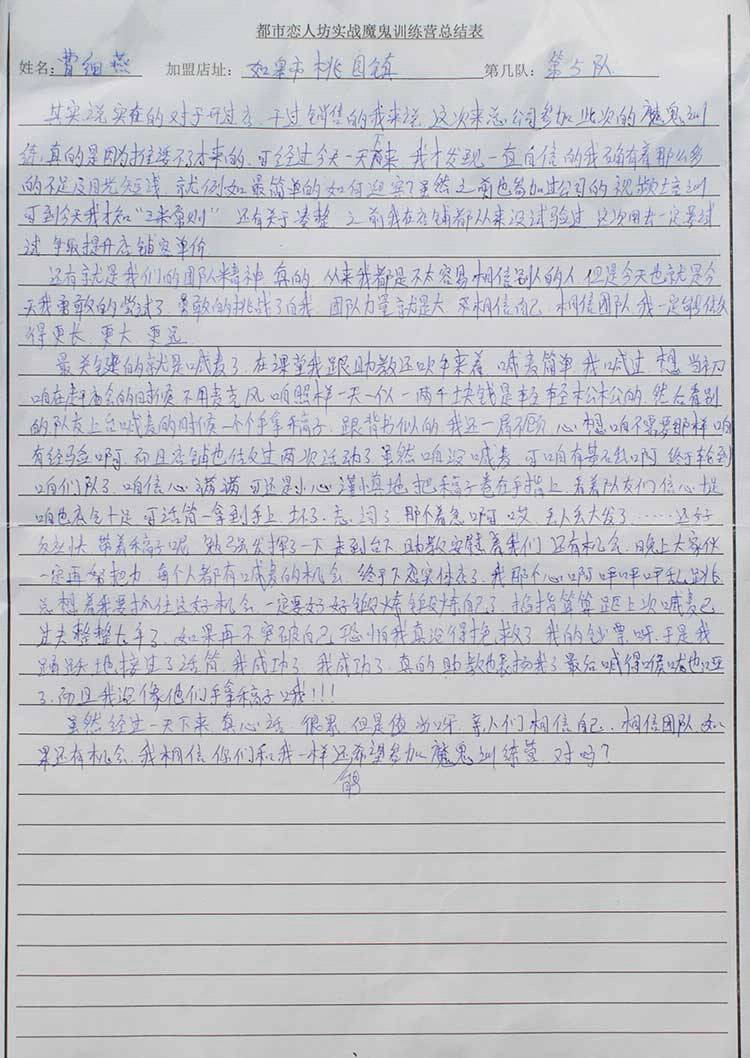 都市恋人坊实战魔鬼训练营总结表
姓名：曹细燕 加盟店址：如皋市桃园镇 第几队：第5队
其实说实在的对于开过店、干过销售的我来说，这次来总公司参加此次的魔鬼训
练真的是因为推诿不了才来的，可经过今天一天下来，我才发现一直自信的我确有着那么多
的不足及目光短浅，就例如最简单的如何迎宾？虽然之前也参加过公司的视频培训
可到今天我才知"三米原则" 还有关于凑整 之前我在店铺都从来没试验过 这次回去一定要试
试 争取提升店铺客单价
还有就是我们的团队精神 真的，从来我都是不太容易相信别人的人，但是今天也就是今
天我勇敢的尝试了，勇敢的挑战了自我，团队力量就是大，要相信自己，相信团队，我一定能做
得更长、更大、更远
最关键的就是喊麦了，在课堂我跟助教还吹牛来着 喊麦简单 我喊过，想当初
咱在赶庙会的时候不用麦克风咱照样一天一仨一两千块钱是轻轻松松的，然后看别
的队友上台喊麦的时候一个个手拿稿子，跟背书似的我还一眉不顾，心想咱不需要那样咱
有经验啊，而且店铺也做过两次活动了虽然咱没喊麦，可咱有基础啊 终于轮到
咱们队了，咱信心满满，可还是小心谨慎地把稿子卷在手指上，看着队友们信心十足
咱也底气十足 可话筒一拿到手上，坏了，忘词了 那个着急啊 哎 丢人丢大发了……还好
反应快 带着稿子呢 勉强发挥了一下 走到台下 助教安慰着我们 还有机会，晚上大家伙
一定再努把力，每个人都有喊麦的机会，终于下店实体店了，我那个心啊呯呯呯乱跳
总想着我要抓住这好机会 一定要好好锻炼锻炼自己了，掐指算算距上次喊麦已
过去整整大半了，如果再不突破自己恐怕我真没得挽救了 我的钞票呀，于是我
踊跃地接过了话筒，我成功了，我成功了，真的助教也表扬我了最后喊得喉咙也哑
了，而且我没像他们手拿稿子哦！！！
虽然经过一天下来，真心话，很累，但是值当呀，亲人们相信自己，相信团队，如
果还有机会，我相信你们和我一样还希望参加魔鬼训练营，对吗？
能